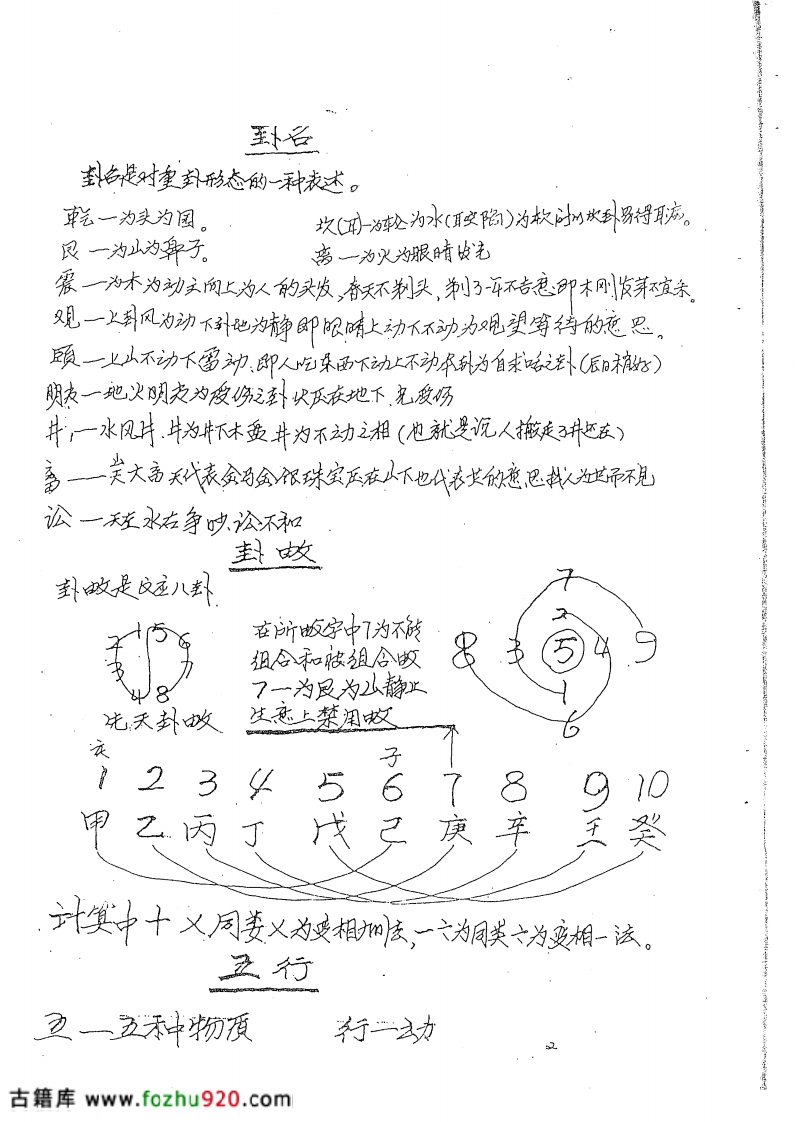 卦名
卦名是对重卦形态的一种表述。
乾一为头为园。 坎(耳)一为轮为水(耳安陷)为
艮一为山为鼻子。 离一为火为眼睛
震一为木为动主向上为人的头发,春天不剃头,剃了一年不吉意即木刚发芽不宜杀。
观一上卦风为动下卦地为静即眼睛上动下不动为观望等待的意思。
頤一上山不动下雷动.即人吃东西下动上不动本卦为自求 之卦(后日稍好)
明夷一地火明夷为受伤之卦火压在地下.光受伤
井,一水风井.井为井下木 井为不动之相(也就是说人搬走了井还在)
畜一一山天大畜天代表金马金银珠宝压在山下也代表 的意思 人为 而不见
讼一天在水右争吵.讼不和
卦数
卦数是反应八卦
1 5
2 6
3 7
4 8
先天卦数
在所数字中7为不能
组合和被组合数
7一为艮为山静止
生意上禁用数
7
2
8 3 5 4 9
1
6
亥 子
1 2 3 4 5 6 7 8 9 10
甲 乙 丙 丁 戊 己 庚 辛 壬 癸
计算中十 乂同类乂为变相加法,一六为同类六为变相一法。
五行
五一五种物质 行一动
2
古籍库 www.fozhu920.com